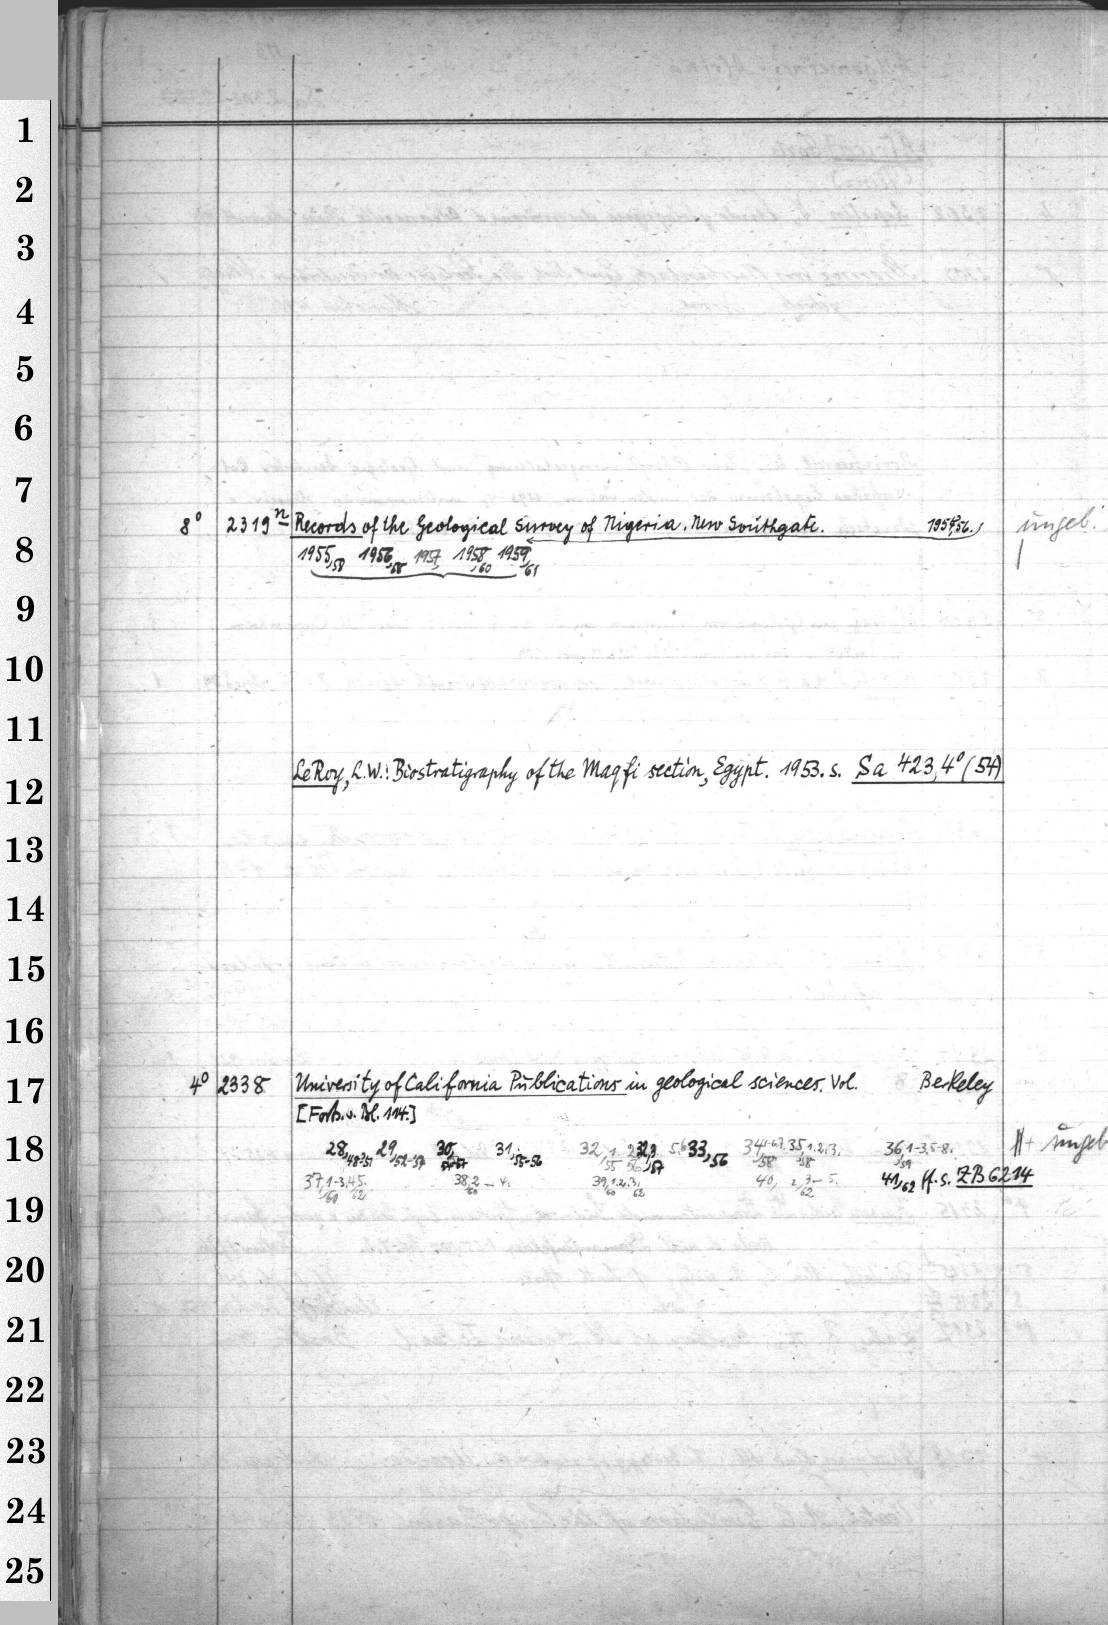 1
2
3
4
5
6
7
8° 2319 n Records of the Geological Survey of Nigeria. New Southgate. 1954,56. ungeb.
8
1955,58 1956,58 1957, 1958,60 1959,61
9
10
11
LeRoy, L.W.: Biostratigraphy of the Maqfi section, Egypt. 1953. s. Sa 423,4°(54)
12
13
14
15
16
17
4° 2338 University of California Publications in geological sciences. Vol. Berkeley
[Forts. v. Bl. 114.]
18
28,48-51 29,52-54 30, 31,55-56 32,1. 33,56 34, 35,1.2.3. 36,1-3,5-8. ungeb
37,1-3.4.5. 38,2-4. 39,1.2.3. 40, 41,62 ff. s. ZB 6214
19
20
21
22
23
24
25